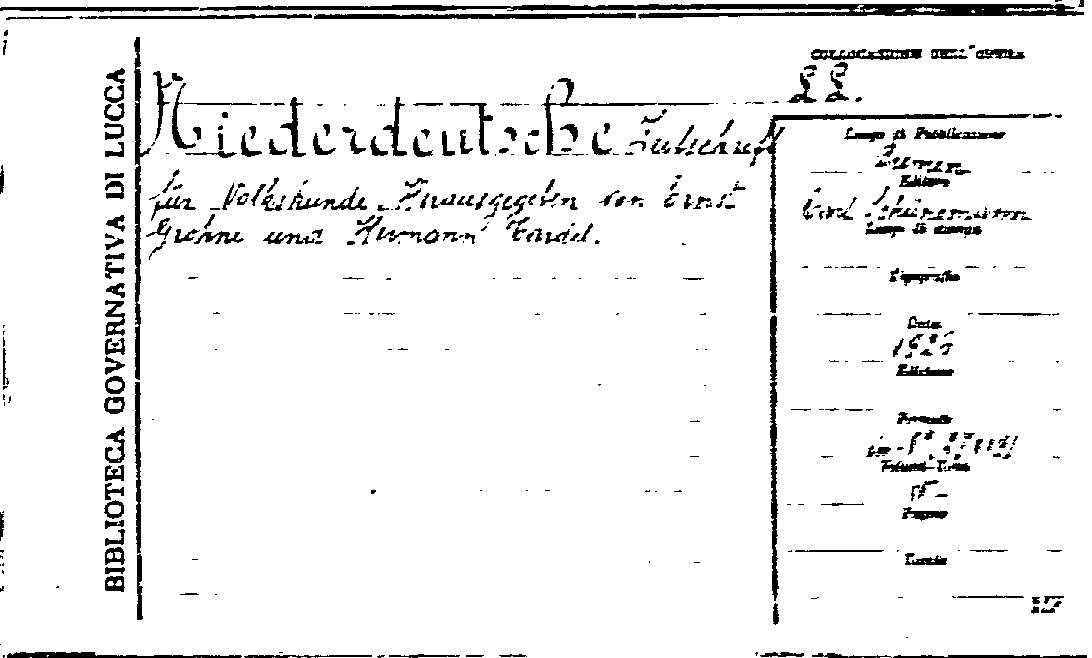 BIBLIOTECA GOVERNATIVA DI LUCCA
COLLOCAZIONE DELL'OPERA
LL.
Niederdeutsche Zeitschrift
für Volkskunde Herausgegeben von Ernst
Grohne und Hermann Tardel.
Luogo di Pubblicazione
Bremen
Editore
Carl Schünemann
Luogo di stampa
Tipografia
Data
1926
Edizione
Formato
in-8°
Volumi-Tomo
Pagine
Tavole